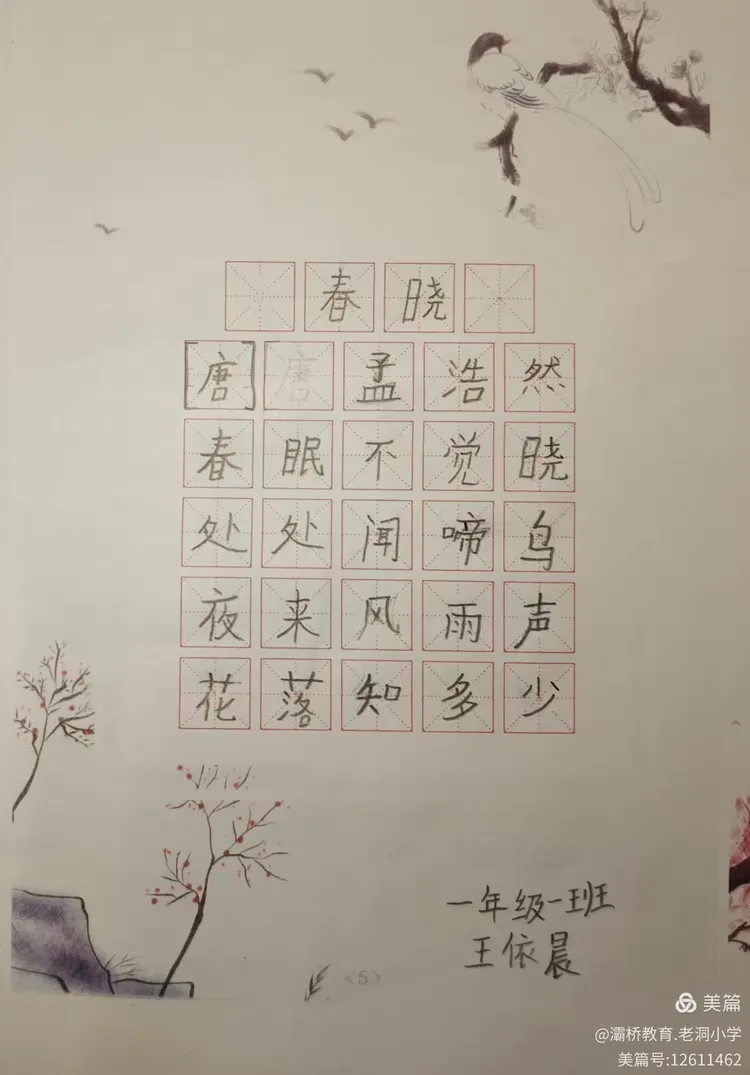 春晓
[唐]唐孟浩然
春眠不觉晓
处处闻啼鸟
夜来风雨声
花落知多少
一年级一班
王依晨
<5>
美篇
@灞桥教育.老洞小学
美篇号:12611462